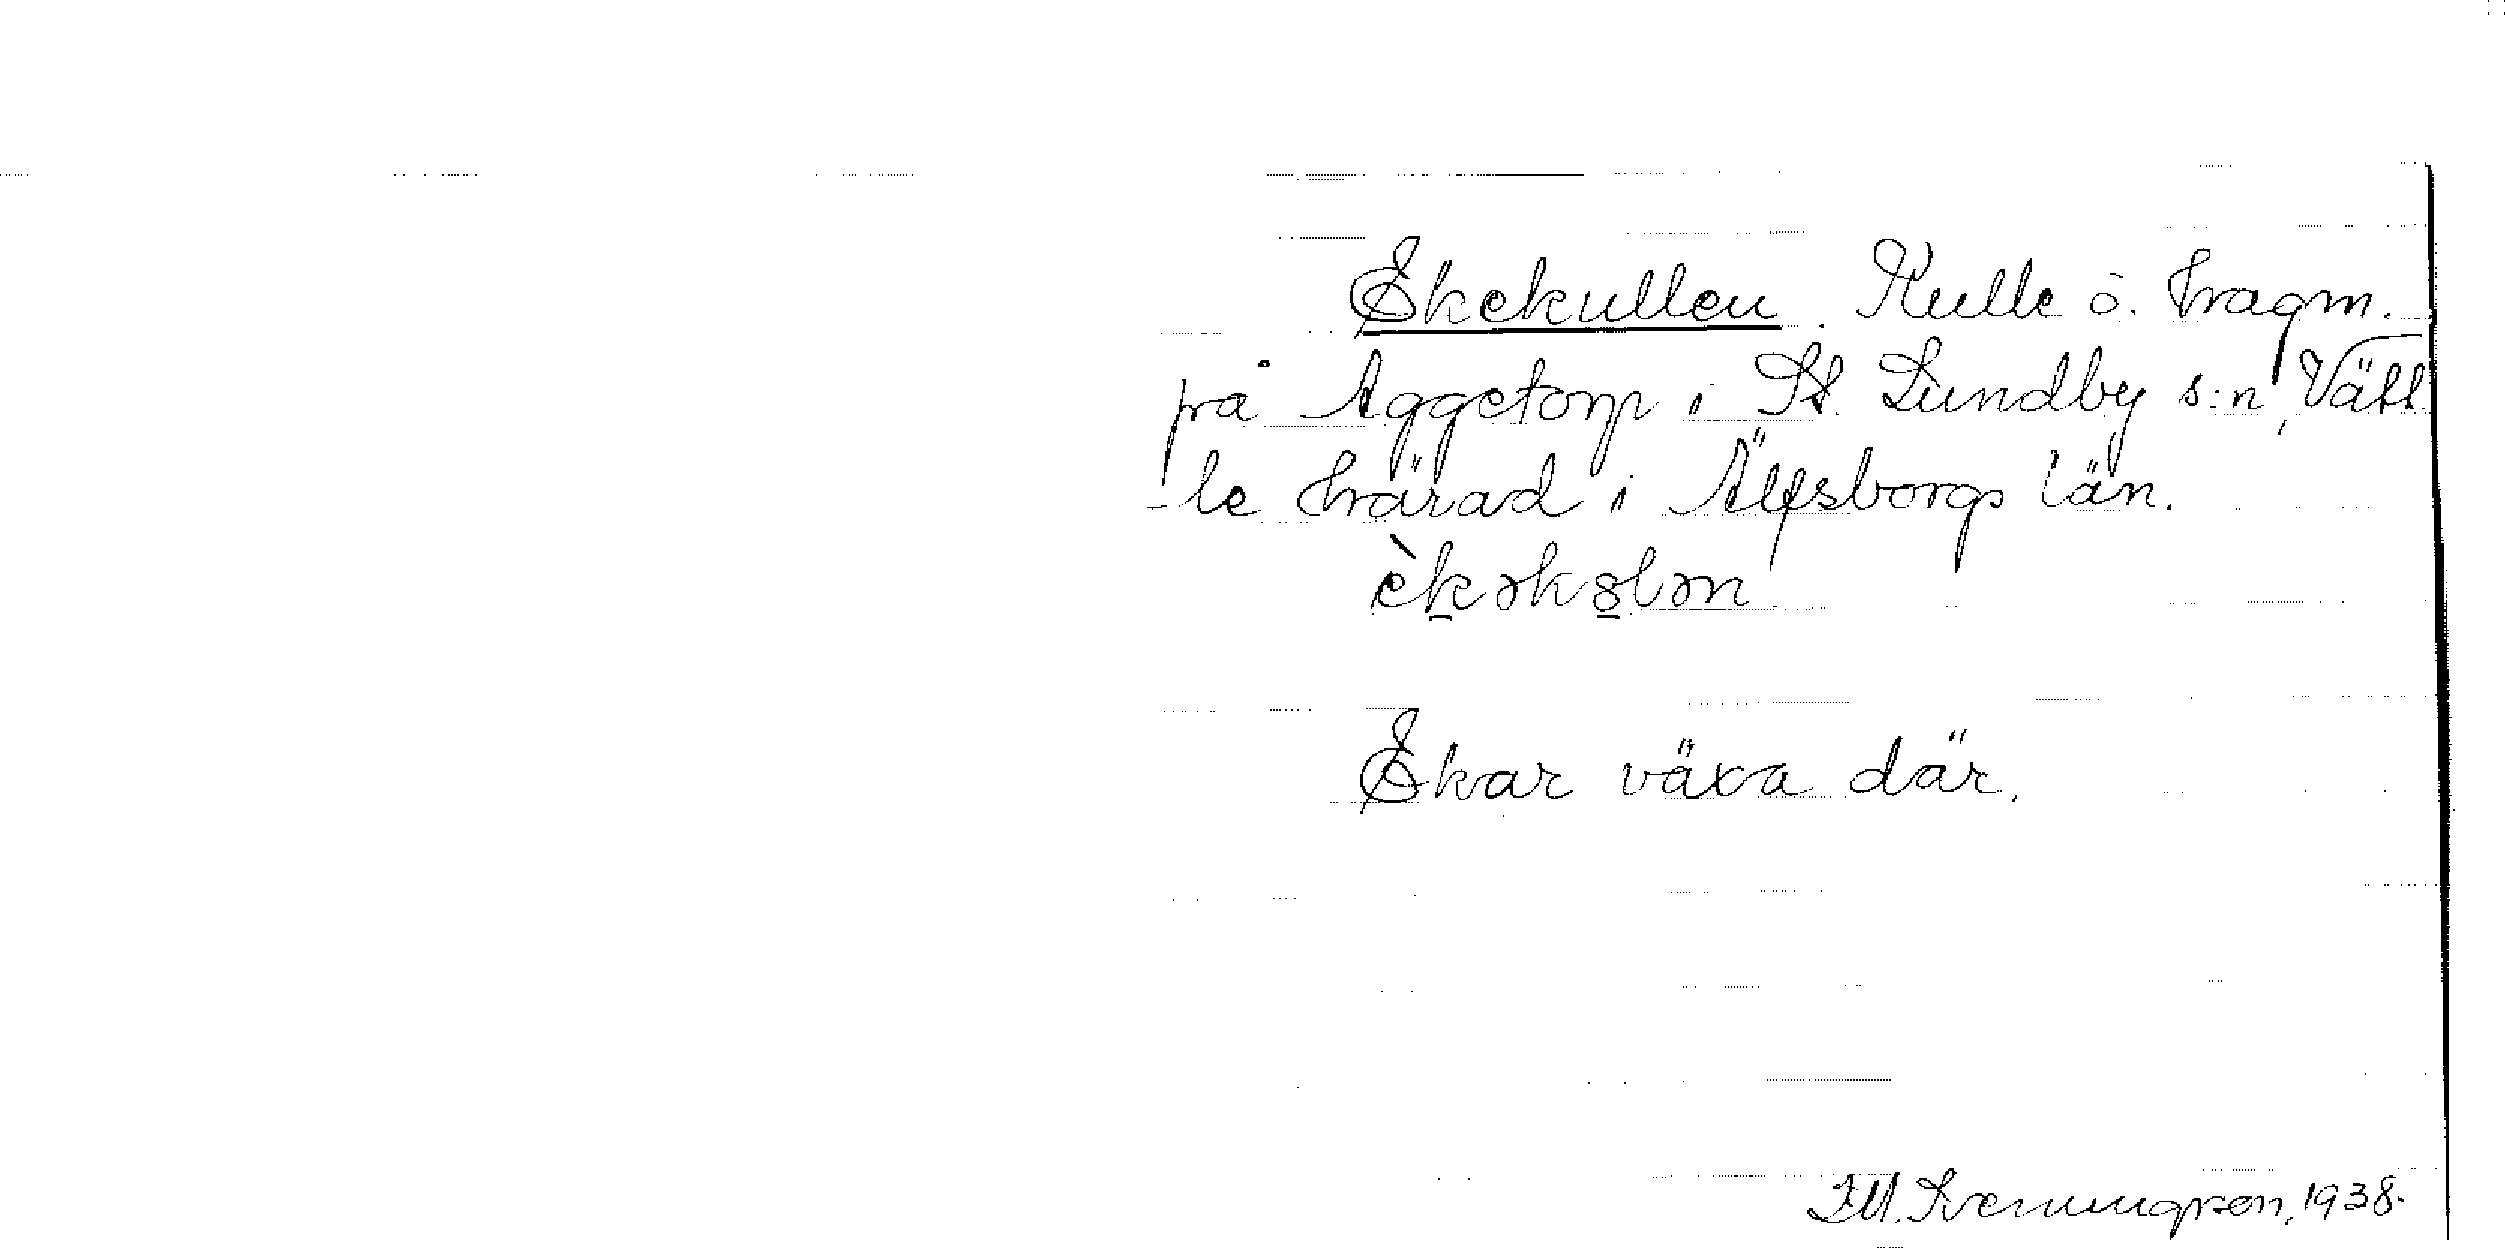 Ekekullen. Kulle ö. hagm.
på Aggetorp i St. Lundby s:n, Vätt
le härad i Älfsborgs län.
èkəkɞlən
Ekar växa där.
1938.